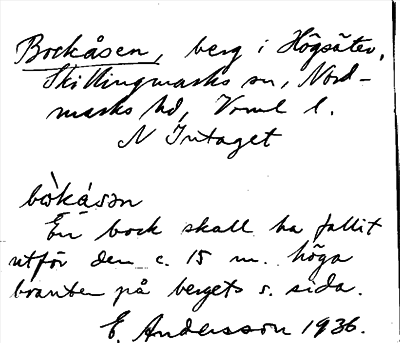 Bockåsen, berg i Högsäter,
Skillingmarks sn, Nord-
marks hd, Vrml l.
N Intaget
bòkåsən
En bock skall ha fallit
utför den c. 15 m. höga
branten på bergets s. sida.
E. Andersson 1936.